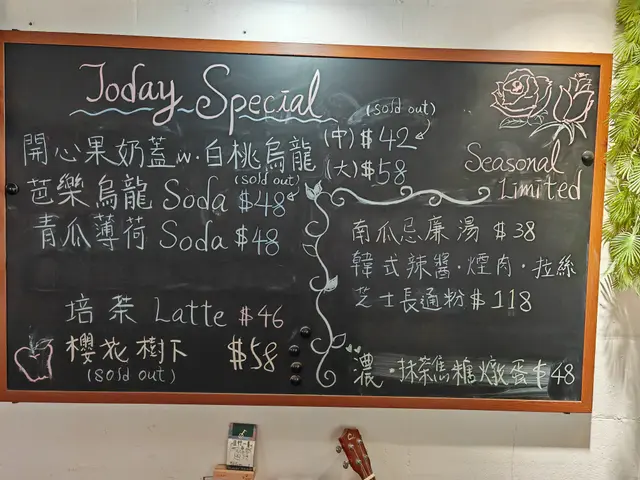 Today Special
開心果奶蓋w.白桃烏龍
(sold out)
(中)$42
(大)$58
(sold out)
芭樂烏龍 Soda $48
青瓜薄荷 Soda $48
培茶 Latte $46
櫻花樹下 $58
(sold out)
Seasonal
Limited
南瓜忌廉湯 $38
韓式辣醬·煙肉·拉絲
芝士長通粉$118
濃·抹茶焦糖燉蛋$48